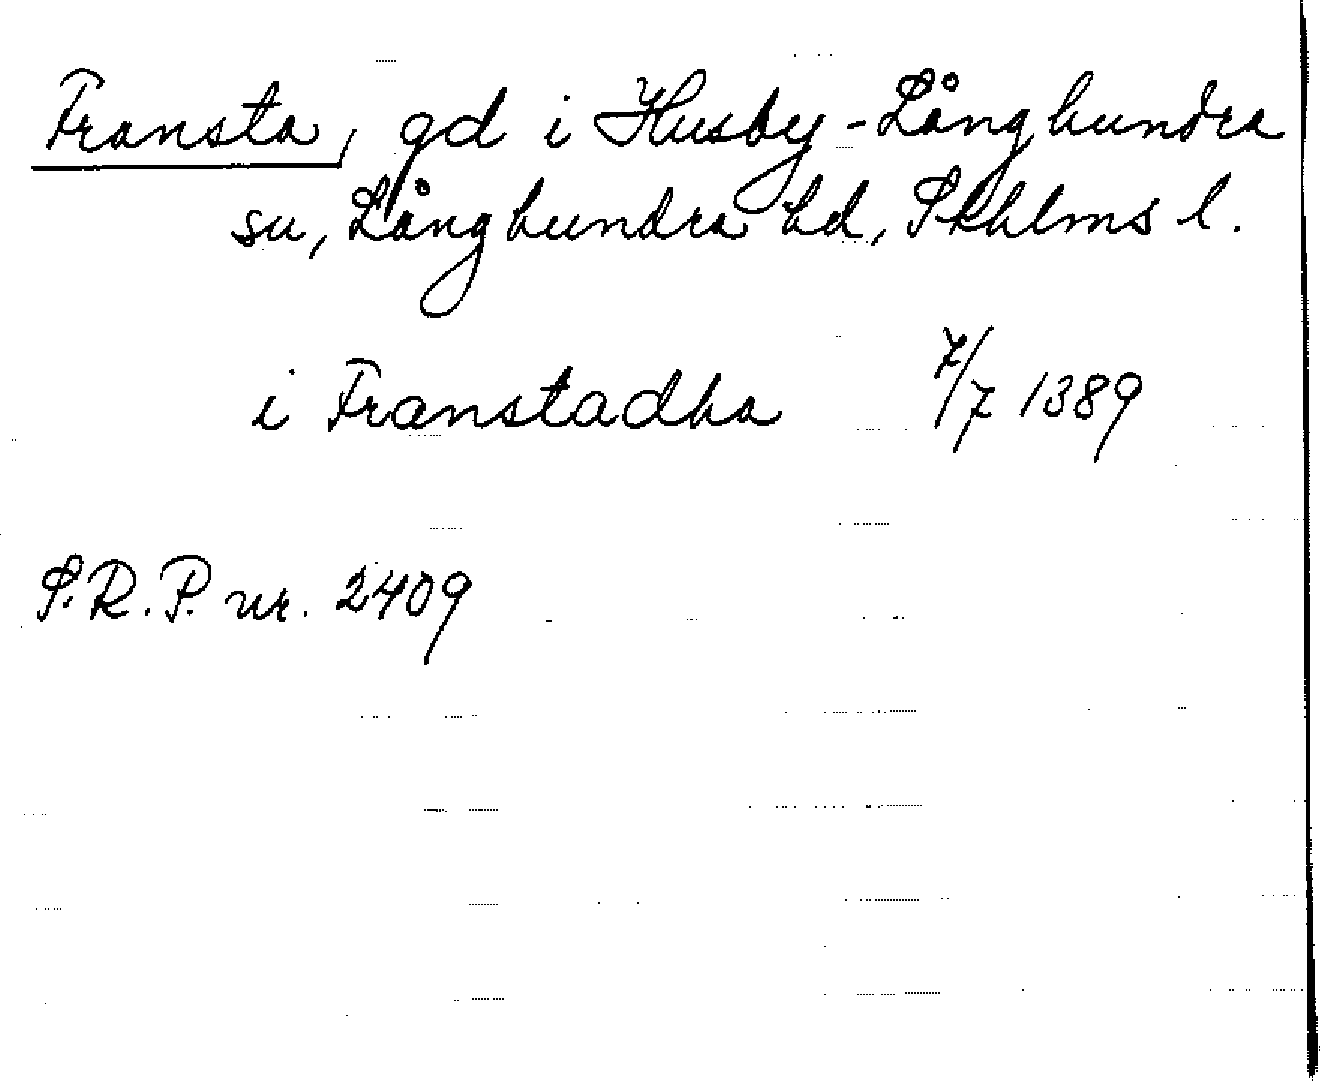 Fransta, gd i Husby-Långhundra
su, Långhundra hd, Skhlms l.
i Franstadha 7/7 1389
S.R.P. nr. 2409